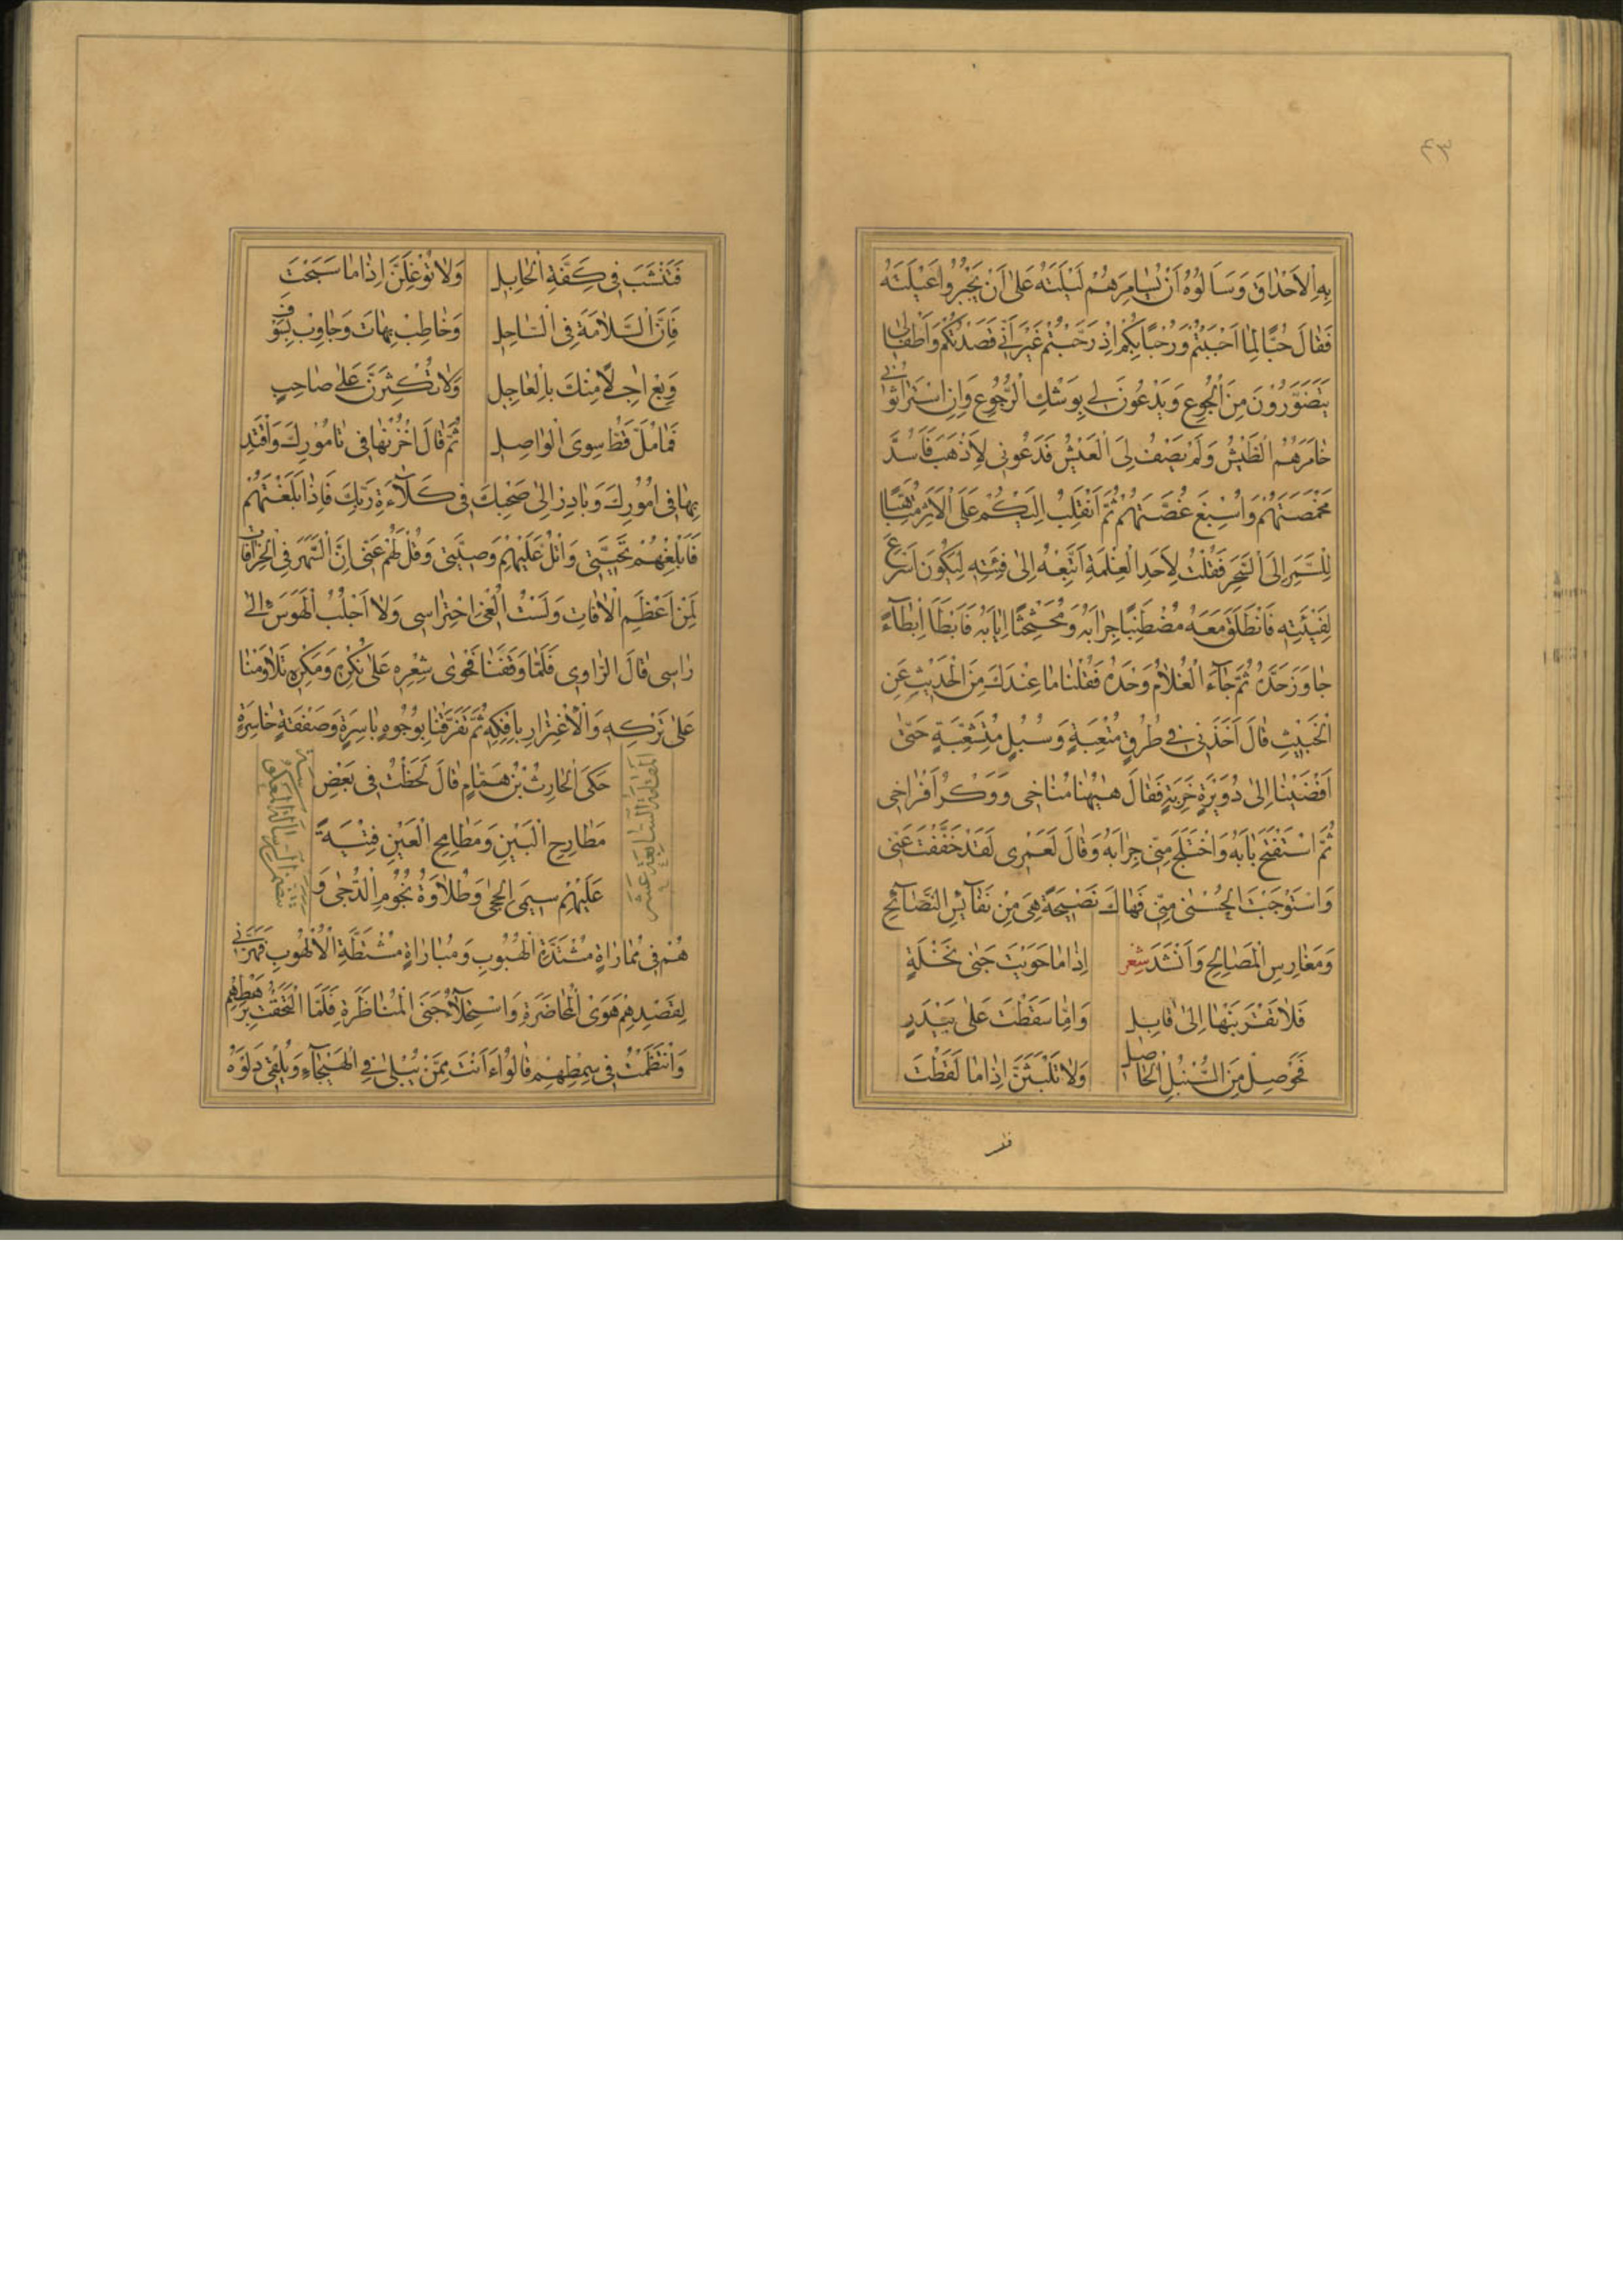 ٤٣
بِهِ الاَحْدٰاقَ وَسَأَلُوهُ اَنْ يُسٰامِرَهُمْ لَيْلَتَهُ عَلىٰ اَنْ يَجْبُرُوا عَيْلَتَهُ
فَقٰالَ حُبًّا لِمٰا اَحْبَبْتُمْ وَرُحْبًا بِكُمْ اِذْ رَحَّبْتُمْ غَيْرَ اَنّى قَصَدْتُكُمْ وَاَطْفٰالى
يَتَضَوَّرُوْنَ مِنَ الْجُوعِ وَيَدْعُونَ لى بِوَشْكِ الرُّجُوعِ وَاِنِ اسْتَرٰاثُونى
خٰامَرَهُمُ الطَّيْشُ وَلَمْ يَصْفُ لَهُمُ الْعَيْشُ فَدَعُونى لِاَذْهَبَ فَاَسُدَّ
مَخْمَصَتَهُمْ وَاُسِيغَ غُصَّتَهُمْ ثُمَّ اَنْقَلِبُ اِلَيْكُمْ عَلَى الْاَثَرِ مُتَاَهِّبًا
لِلسَّمَرِ اِلَى السَّحَرِ فَقُلْتُ لِاَحَدِ الْغِلْمَةِ اَتَّبِعْهُ اِلىٰ فِئَتِهِ لِيَكُونَ اَسْرَعَ
لِفَيْئَتِهِ فَانْطَلَقَ مَعَهُ مُضْطَبِنًا جِرٰابَهُ وَمُحَثْحِثًا اِيٰابَهُ فَاَبْطَأَ اِبْطٰآءً
جٰاوَزَ حَدَّهُ ثُمَّ جٰآءَ الْغُلاٰمُ وَحْدَهُ فَقُلْنٰا مٰا عِنْدَكَ مِنَ الْحَدِيْثِ عَنِ
الْخَبِيْثِ قٰالَ اَخَذَنى فى طُرُقٍ مُتْعِبَةٍ وَسُبُلٍ مُتَشَعِّبَةٍ حَتّىٰ
اَفْضَيْنٰا اِلىٰ دُوَيْرَةٍ خَرِبَةٍ فَقٰالَ هٰيهُنٰا مُنٰاخى وَوَكْرُ اَفْرٰاخى
ثُمَّ اسْتَفْتَحَ بٰابَهُ وَاخْتَلَجَ مِنّى جِرٰابَهُ وَقٰالَ لَعَمْرى لَقَدْ خَفَّفْتَ عَنّى
وَاسْتَوْجَبْتَ الْحُسْنىٰ مِنّى فَهٰاكَ نَصِيْحَةً هِىَ مِنْ نَفٰآئِسِ النَّصٰآئِحِ
وَمَغٰارِسِ الْمَصٰالِحِ وَاَنْشَدَ شعر اِذٰا مٰا حَوَيْتَ جَنىٰ نَخْلَةٍ
فَلاٰ تَقْرَبَنْهٰا اِلىٰ قٰابِلِ وَاِمّٰا سَقَطْتَ عَلىٰ بَيْدَرٍ
فَحَوْصِلْ مِنَ السُّنْبُلِ الْحٰاصِلِ وَلاٰ تَلْبَثَنَّ اِذٰا مٰا لَقَطْتَ
فتنشب
فَتَنْشَبَ فى كِفَّةِ الْحٰابِلِ وَلاٰ تُوْغِلَنَّ اِذٰا مٰا سَبَحْتَ
فَاِنَّ السَّلاٰمَةَ فِى السّٰاحِلِ وَخٰاطِبْ بِهٰاتَ وَجٰاوِبْ بِسَوْفَ
وَبِعْ اٰجِلاً مِنْكَ بِالْعٰاجِلِ وَلاٰ تُكْثِرَنَّ عَلىٰ صٰاحِبٍ
فَمٰا مُلَّ قَطُّ سِوَى الْوٰاصِلِ ثُمَّ قٰالَ اخْزُنْهٰا فى تٰامُوْرِكَ وَاقْتَدِ
بِهٰا فى اُمُوْرِكَ وَبٰادِرْ اِلىٰ صَحْبِكَ فى كَلآءَةِ رَبِّكَ فَاِذٰا بَلَغْتَهُمْ
فَاَبْلِغْهُمْ تَحِيَّتى وَاتْلُ عَلَيْهِمْ وَصِيَّتى وَقُلْ لَهُمْ عَنّى اِنَّ السَّهَرَ فِى الْخُرٰافٰاتِ
لَمِنْ اَعْظَمِ الْاٰفٰاتِ وَلَسْتُ اُلْغى احْتِرٰاسى وَلاٰ اَجْلُبُ الْهَوَسَ اِلىٰ
رٰاسى قٰالَ الرّٰاوى فَلَمّٰا وَقَفْنٰا فَحْوىٰ شِعْرِهِ عَلىٰ نُكْرِهِ وَمَكْرِهِ تَلاٰوَمْنٰا
عَلىٰ تَرْكِهِ وَالْاِغْتِرٰارِ بِاِفْكِهِ ثُمَّ تَفَرَّقْنٰا بِوُجُوهٍ بٰاسِرَةٍ وَصَفْقَةٍ خٰاسِرَةٍ
المقامة السابعة عشر
حَكَى الْحٰارِثُ بْنُ هَمّٰامٍ قٰالَ لَحَظْتُ فى بَعْضِ
مَطٰارِحِ الْبَيْنِ وَمَطٰامِحِ الْعَيْنِ فِتْيَةً
عَلَيْهِمْ سِيمَى الْحِجىٰ وَطُلاٰوَةُ نُجُومِ الدُّجىٰ وَ
هُمْ فى مُمٰارٰاةٍ مُشْتَدَّةِ الْهُبُوبِ وَمُبٰارٰاةٍ مُشْتَطَّةِ الْاُلْهُوبِ فَهَزَّنى
لِقَصْدِهِمْ هَوَى الْمُحٰاضَرَةِ وَاسْتِحْلآءُ جَنَى الْمُنٰاظَرَةِ فَلَمَّا الْتَحَقْتُ بِرَهْطِهِمْ
وَانْتَظَمْتُ فى سِمْطِهِمْ قٰالُوا ءَاَنْتَ مِمَّنْ يُبْلىٰ فِى الْهَيْجٰآءِ وَيُلْقى دَلْوَهُ